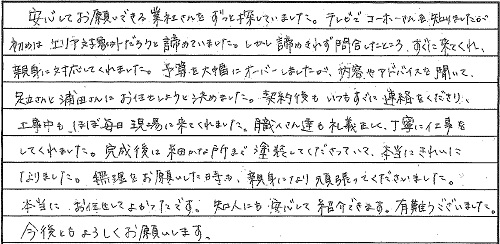 安心してお願いできる業社さんをずっと探していました。テレビでコーホーさんを知りましたが
初めは エリア対象外だろうと諦めていました。しかし諦めきれず問合したところ、すぐに来てくれ、
親身に対応してくれました。予算を大幅にオーバーしましたが、内容やアドバイスを聞いて、
足立さんと浦田さんに お任せしようと決めました。契約後も いつもすぐに 連絡をくださり、
工事中も、ほぼ毎日 現場に来てくれました。職人さん達も 礼義正しく、丁寧に仕事を
してくれました。完成後は 細かな所まで 塗装してくださっていて、本当に きれいに
なりました。修理をお願いした時も、親身になり 頑張ってくださいました。
本当に お任せしてよかったです。知人にも 安心して 紹介できます。有難うございました。
今後とも よろしくお願いします。